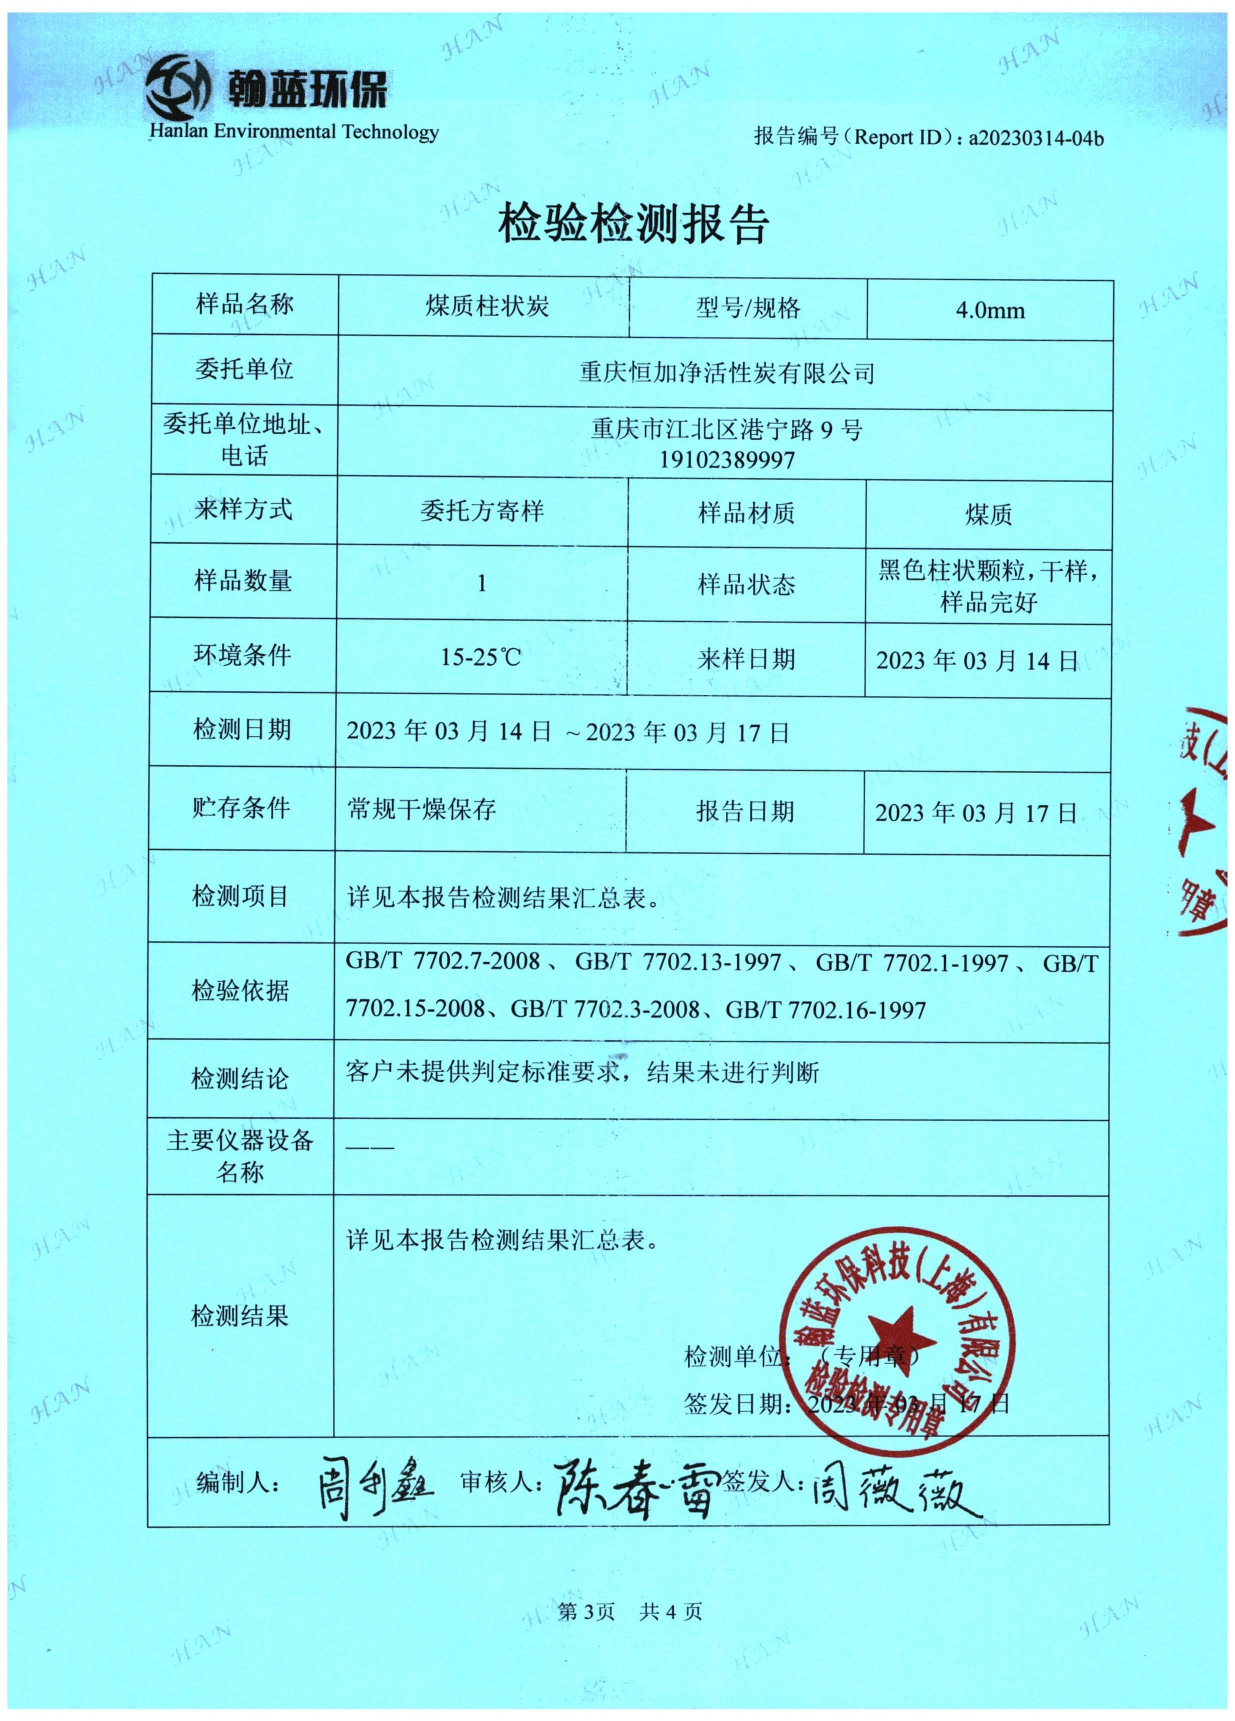 翰蓝环保
Hanlan Environmental Technology
报告编号（Report ID）：a20230314-04b
检验检测报告
样品名称 煤质柱状炭 型号/规格 4.0mm
委托单位 重庆恒加净活性炭有限公司
委托单位地址、
电话
重庆市江北区港宁路 9 号
19102389997
来样方式 委托方寄样 样品材质 煤质
样品数量 1 样品状态
黑色柱状颗粒，干样，
样品完好
环境条件 15-25℃ 来样日期 2023 年 03 月 14 日
检测日期 2023 年 03 月 14 日 ~ 2023 年 03 月 17 日
贮存条件 常规干燥保存 报告日期 2023 年 03 月 17 日
检测项目 详见本报告检测结果汇总表。
检验依据
GB/T 7702.7-2008 、 GB/T 7702.13-1997 、 GB/T 7702.1-1997 、 GB/T
7702.15-2008、GB/T 7702.3-2008、GB/T 7702.16-1997
检测结论 客户未提供判定标准要求，结果未进行判断
主要仪器设备
名称
——
检测结果
详见本报告检测结果汇总表。
检测单位：（专用章）
签发日期：2023 年 03 月 17 日
翰蓝环保科技(上海)有限公司
检验检测专用章
编制人： 周利鑫 审核人： 陈春雷 签发人： 周薇薇
第 3页 共 4 页
技(上
用章
HAN